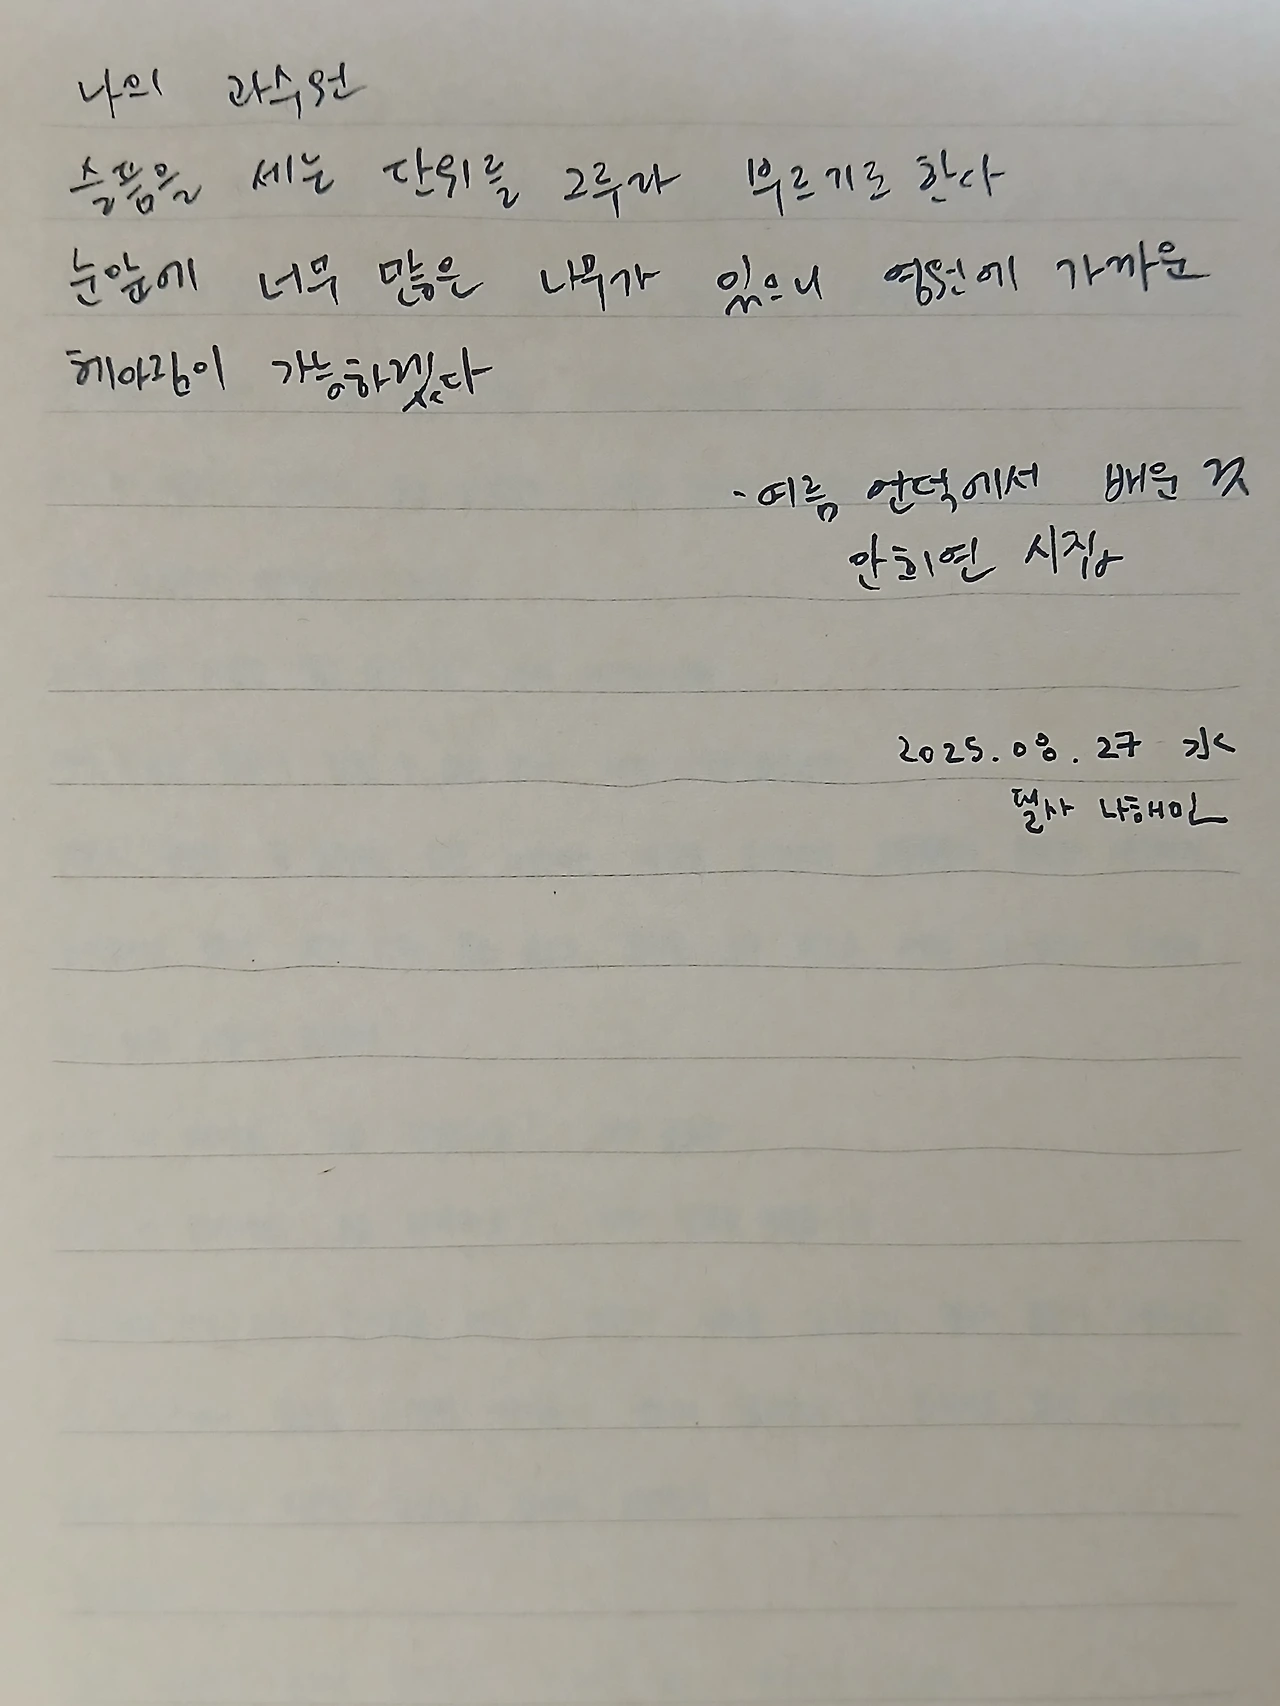 나의 과수원
슬픔을 세는 단위를 그루라 부르기로 한다
눈앞에 너무 많은 나무가 있으니 영원에 가까운
헤아림이 가능하겠다
- 여름 언덕에서 배운 것
안희연 시집
2025.08.27 水
필사 나해인